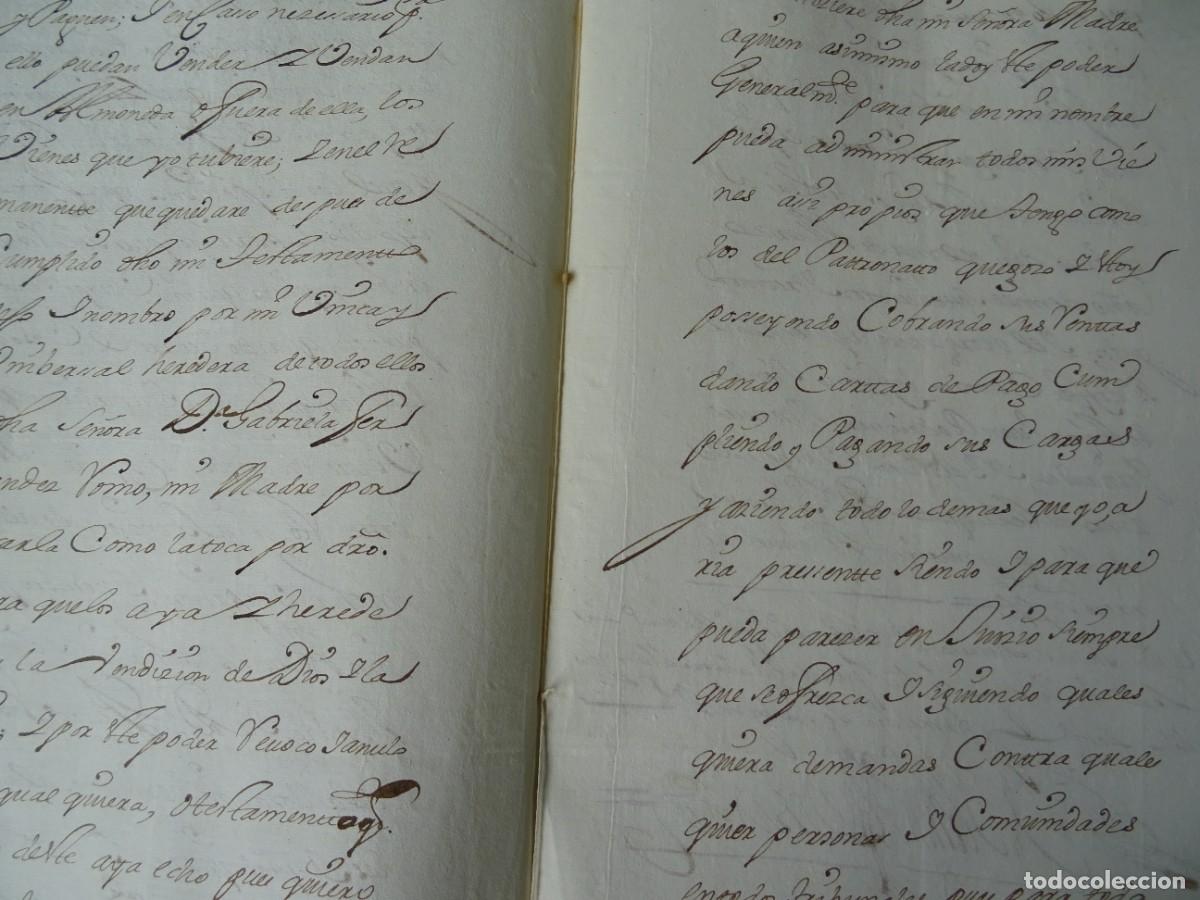 y Paguen; I en Caso nesessario p.
ello puedan Vender I Vendan
en Almoneda o fuera de ella, los
Vienes que yo tubiere; I en el Re
manentte que quedare despues de
Cumplido dho mi Testamentto
Inombro por mi Unica y
Vnibersal heredera de todos ellos
dha Señora D.ª Gabriela Fer
nandez Romo, mi Madre por
Como latoca por dro.
ra quelos aya I herede
la Vendizion de Dios I la
I por stte poder Revoco Ianulo
qual quiera, Testamentto
deste aya echo pues quiero
dha mi Señora Madre
aquien asimismo ladoy stte poder
Generalm.te para que en mi nombre
pueda administrar todos mis Vie
nes assi propios que tengo como
los del Patronatto quegozo I stoy
posseyendo Cobrando sus Renttas
dando Carttas de Pago Cum
pliendo y Pagando sus Cargas
y aziendo todo lo demas que yo, a
ria pressentte siendo I para que
pueda pareser en Juizio siempre
que se ofrezca I siguiendo quales
quiera demandas Conttra quales
quier personas I Comunidades
en todos tribunales pues para todo
todocoleccion